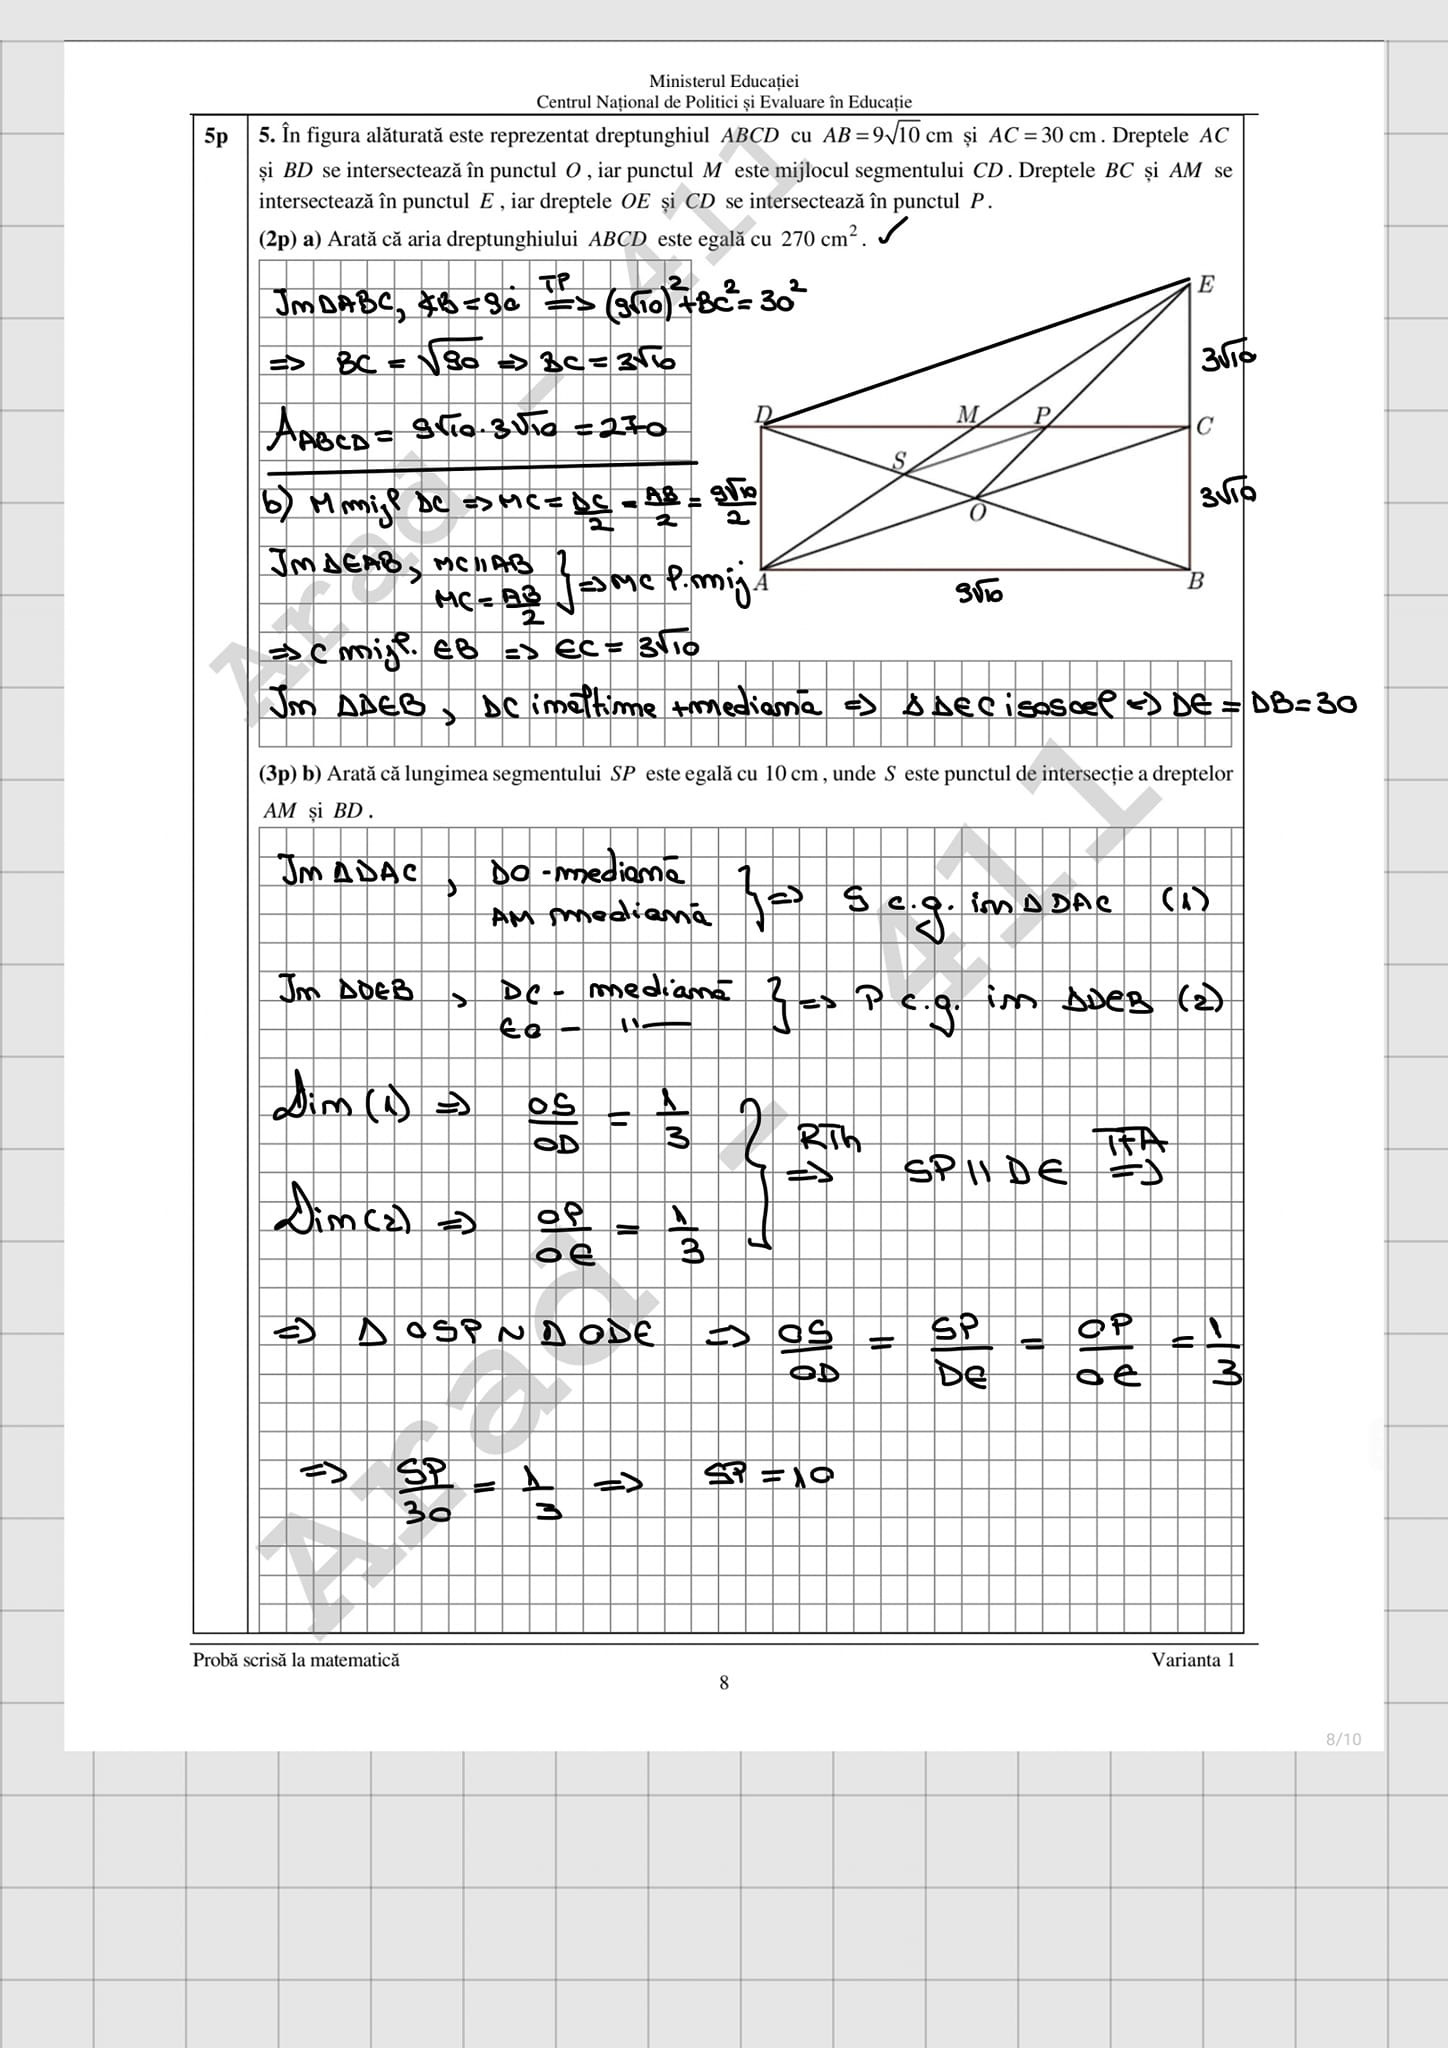 Ministerul Educației
Centrul Național de Politici și Evaluare în Educație
5p
5. În figura alăturată este reprezentat dreptunghiul ABCD cu AB = 9√10 cm și AC = 30 cm. Dreptele AC
și BD se intersectează în punctul O, iar punctul M este mijlocul segmentului CD. Dreptele BC și AM se
intersectează în punctul E, iar dreptele OE și CD se intersectează în punctul P.
(2p) a) Arată că aria dreptunghiului ABCD este egală cu 270 cm². ✓
În ΔABC, ∢B=90° TP => (9√10)²+BC²=30²
=> BC = √90 => BC = 3√10
A ABCD = 9√10·3√10 = 270
b) M mijl DC => MC = DC/2 = AB/2 = 9√10/2
În ΔEAB, MC||AB
MC = AB/2 } => MC l.mij
=> C mijl. EB => EC = 3√10
În ΔDEB, DC înălțime + mediană => ΔDEC isoscel => DE = DB = 30
E
3√10
D
M
P
C
S
3√10
O
A
B
9√10
(3p) b) Arată că lungimea segmentului SP este egală cu 10 cm, unde S este punctul de intersecție a dreptelor
AM și BD.
În ΔDAC, DO - mediană
AM mediană } => S c.g. în ΔDAC (1)
În ΔDEB, DC - mediană
EO - "— } => P c.g. în ΔDEB (2)
Din (1) => OS/OD = 1/3
Din (2) => OP/OE = 1/3 } RTh => SP||DE TFA =>
=> ΔOSP ~ ΔODE => OS/OD = SP/DE = OP/OE = 1/3
=> SP/30 = 1/3 => SP = 10
Arad - 411
Arad - 411
Probă scrisă la matematică
Varianta 1
8
8/10